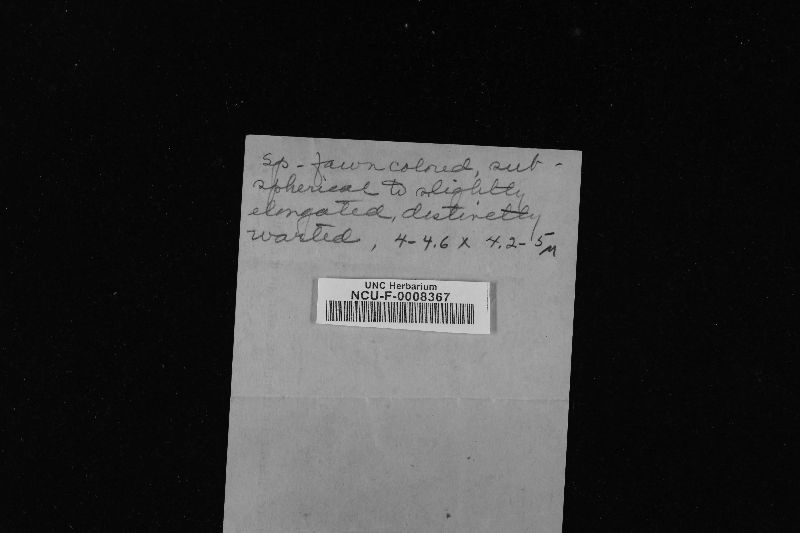 Sp- fawn colored, sub-
spherical to slightly
elongated, distinctly
warted, 4-4.6 x 4.2-5µ
UNC Herbarium
NCU-F-0008367